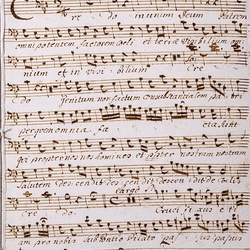 Cre do in unum Deum Patrem
omnipotentem factorem coeli et terrae visibilium
nium et in visi bilium Cre
do genitum non factum consubstantialem patri
per quem omnia fa cta sunt
qui propter nos homines et propter nostram nostram
salutem descendit descendit descen dit de coelis
Largo
cre do Cruci fi xus e
am pro nobis sub Pontio Pilato pas sus pas